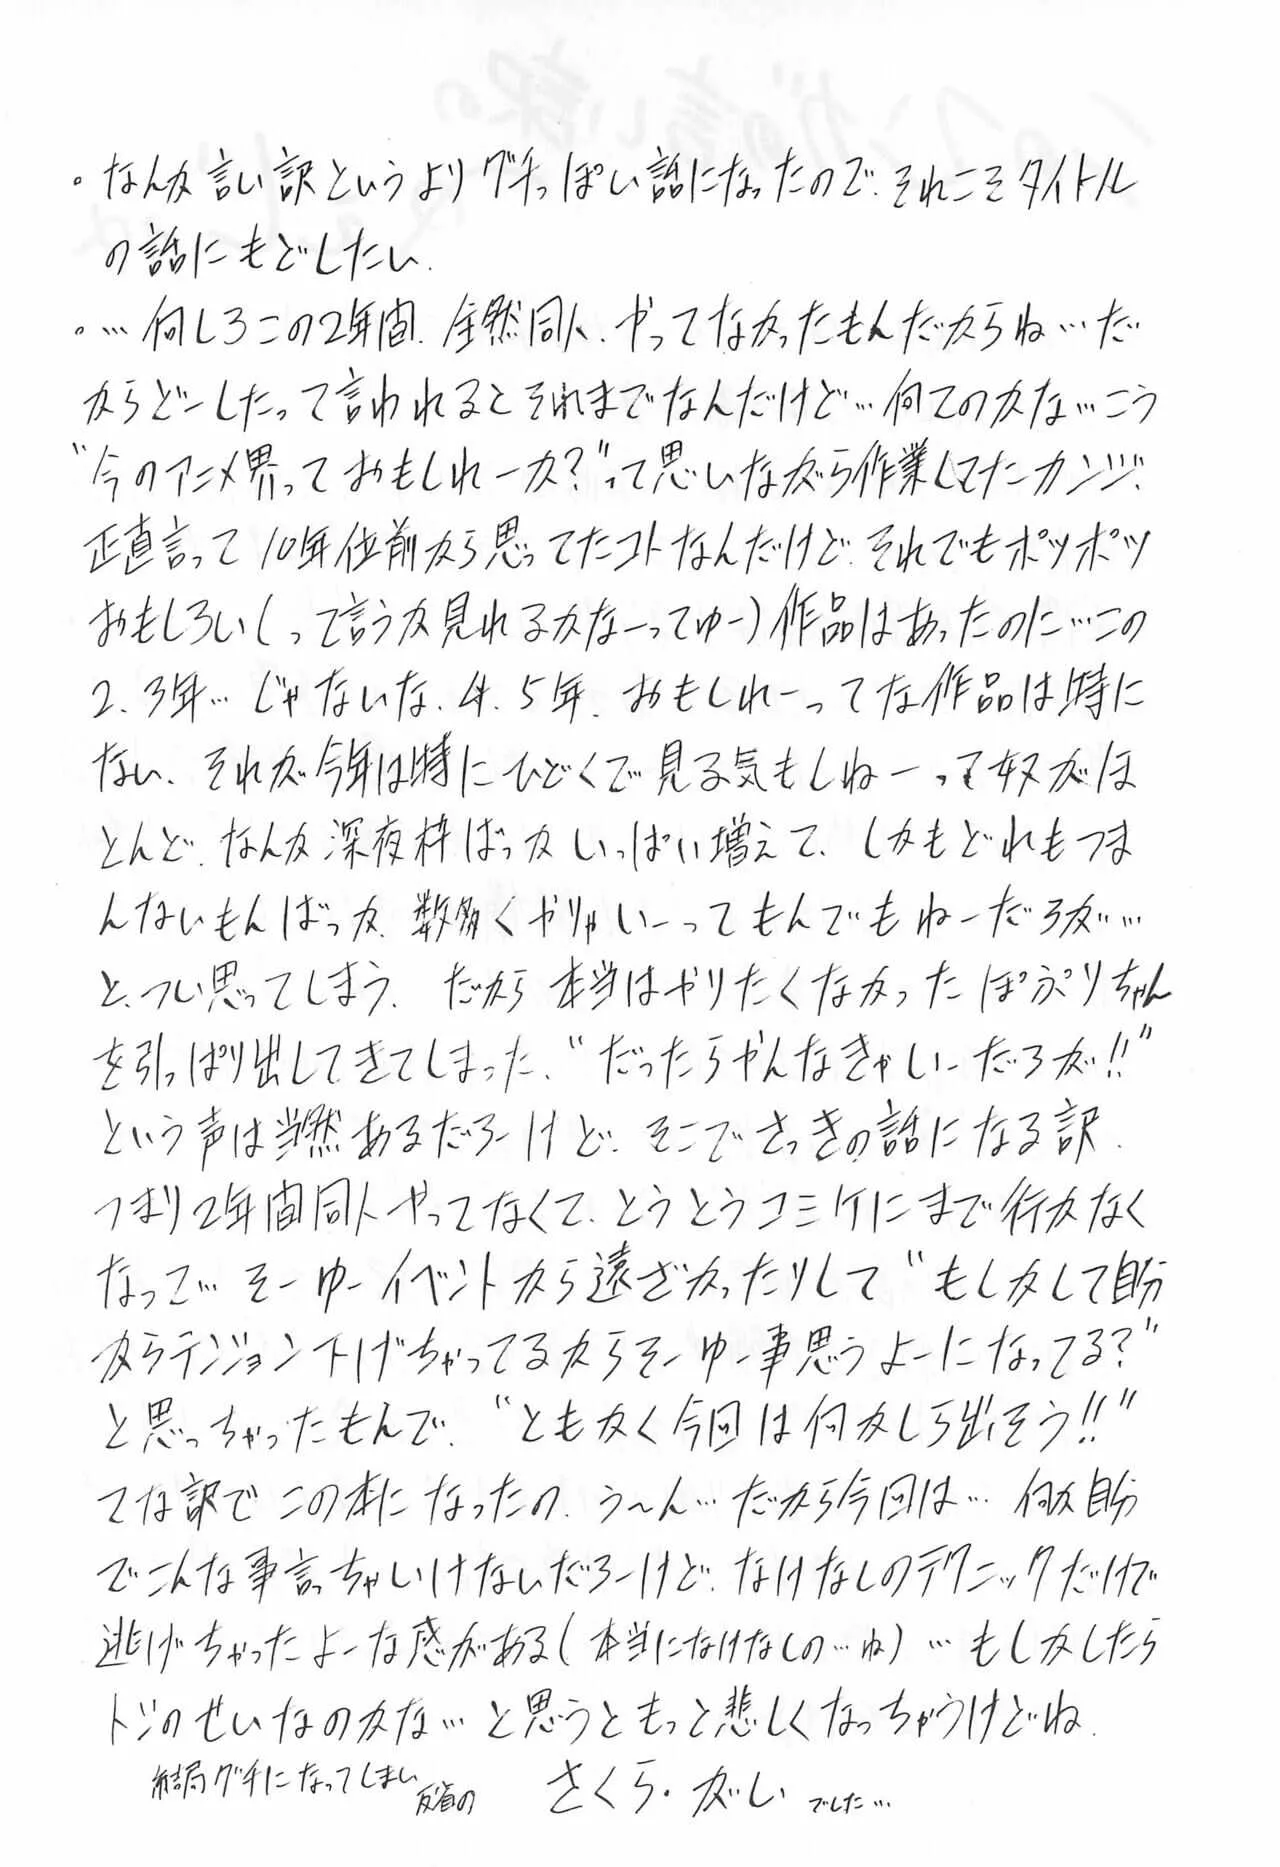 。なんか言い訳というよりグチっぽい話になったので、それこそタイトル
の話にもどしたい.
。…何しろこの2年間、全然同人、やってなかったもんだからね…だ
からどーしたって言われるとそれまでなんだけど…何てのかな…こう
"今のアニメ界っておもしれーか?"って思いながら作業してたカンジ、
正直言って10年位前から思ってたコトなんだけど、それでもポツポツ
おもしろい(って言うか見れるかなーってゆー)作品はあったのに…この
2、3年…じゃないな、4、5年、おもしれーってな作品は特に
ない、それが今年は特にひどくて見る気もしねーって奴がほ
とんど、なんか深夜枠ばっかいっぱい増えて、しかもどれもつま
んないもんばっか、数多くやりゃいーってもんでもねーだろが…
と、つい思ってしまう、だから本当はやりたくなかったぽぷりちゃん
を引っぱり出してきてしまった、"だったらやんなきゃいーだろが!!"
という声は当然あるだろーけど、そこでさっきの話になる訳、
つまり2年間同人やってなくて、とうとうコミケにまで行かなく
なって…そーゆーイベントから遠ざかったりして"もしかして自分
からテンション下げちゃってるからそーゆー事思うよーになってる?"
と思っちゃったもんで、"ともかく今回は何かしら出そう!!"
てな訳でこの本になったの、う〜ん…だから今回は…何か自分
でこんな事言っちゃいけないだろーけど、なけなしのテクニックだけで
逃げちゃったよーな感がある(本当になけなしの…ね)…もしかしたら
トシのせいなのかな…と思うともっと悲しくなっちゃうけどね.
結局グチになってしまい
反省の さくら・がい でした…